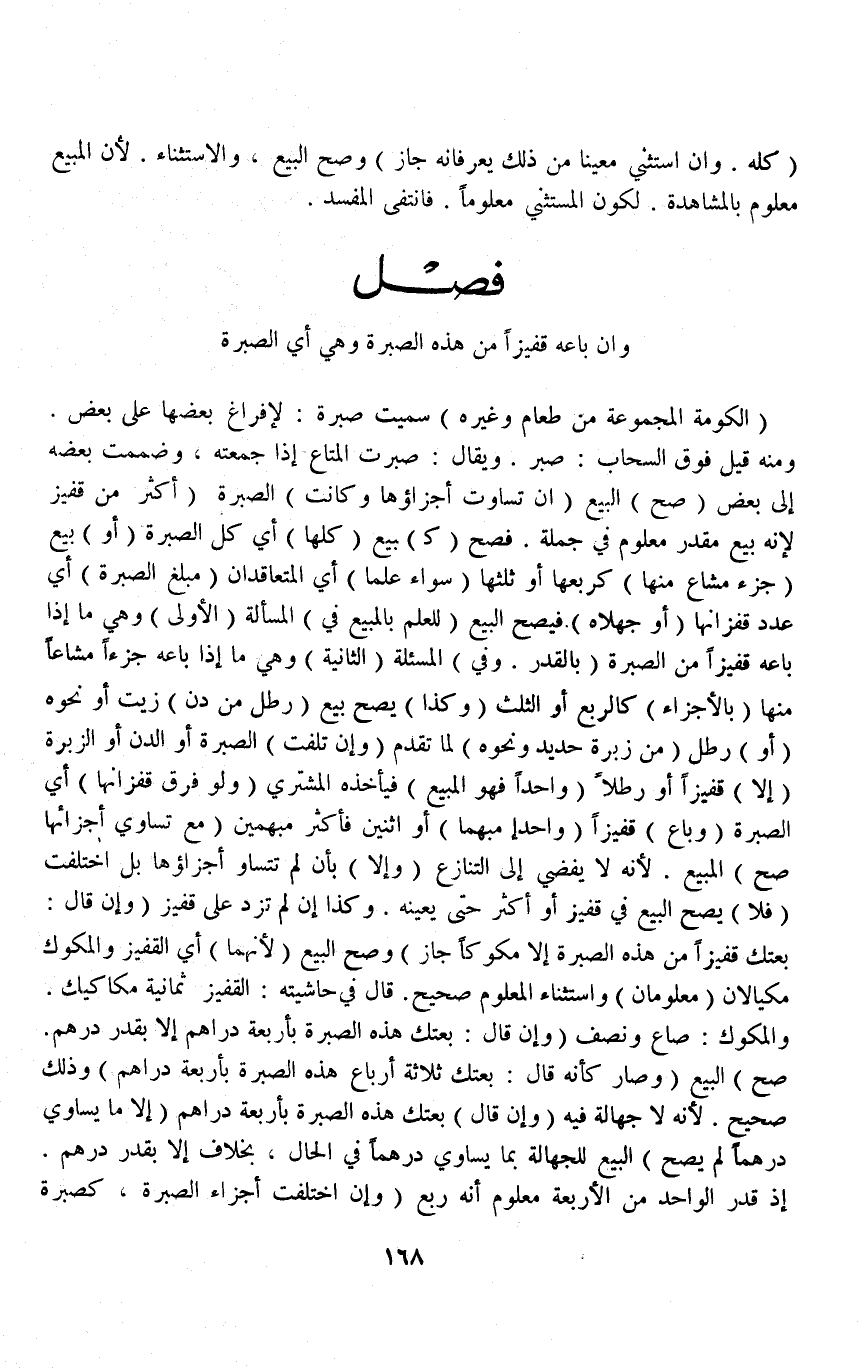 ( كله . وان استثني معينا من ذلك يعرفانه جاز ) وصح البيع ، والاستثناء . لأن المبيع
معلوم بالمشاهدة . لكون المستثني معلوماً . فانتفى المفسد .
فصْل
وان باعه قفيزاً من هذه الصبرة وهي أي الصبرة
( الكومة المجموعة من طعام وغيره ) سميت صبرة : لإفراغ بعضها على بعض .
ومنه قيل فوق السحاب : صبر . ويقال : صبرت المتاع إذا جمعته ، وضممت بعضه
إلى بعض ( صح ) البيع ( ان تساوت أجزاؤها وكانت ) الصبرة ( أكثر من قفيز
لإنه بيع مقدر معلوم في جملة . فصح ( كـ ) بيع ( كلها ) أي كل الصبرة ( أو ) بيع
( جزء مشاع منها ) كربعها أو ثلثها ( سواء علما ) أي المتعاقدان ( مبلغ الصبرة ) أي
عدد قفزانها ( أو جهلاه ).فيصح البيع ( للعلم بالمبيع في ) المسألة ( الأولى ) وهي ما إذا
باعه قفيزاً من الصبرة ( بالقدر . وفي ) المسئلة ( الثانية ) وهي ما إذا باعه جزءاً مشاعاً
منها ( بالأجزاء ) كالربع أو الثلث ( وكذا ) يصح بيع ( رطل من دن ) زيت أو نحوه
( أو ) رطل ( من زبرة حديد ونحوه ) لما تقدم ( وإن تلفت ) الصبرة أو الدن أو الزبرة
( إلا ) قفيزاً أو رطلاً ( واحداً فهو المبيع ) فيأخذه المشتري ( ولو فرق قفزانها ) أي
الصبرة ( وباع ) قفيزاً ( واحدإ مبهما ) أو اثنين فأكثر مبهمين ( مع تساوي أجزائها
صح ) المبيع . لأنه لا يفضي إلى التنازع ( وإلا ) بأن لم تتساو أجزاؤها بل اختلفت
( فلا ) يصح البيع في قفيز أو أكثر حتى يعينه . وكذا إن لم تزد على قفيز ( وإن قال :
بعتك قفيزاً من هذه الصبرة إلا مكوكاً جاز ) وصح البيع ( لأنهما ) أي القفيز والمكوك
مكيالان ( معلومان ) واستثناء المعلوم صحيح. قال في حاشيته : القفيز ثمانية مكاكيك .
والمكوك : صاع ونصف ( وإن قال : بعتك هذه الصبرة بأربعة دراهم إلا بقدر درهم.
صح ) البيع ( وصار كأنه قال : بعتك ثلاثة أرباع هذه الصبرة بأربعة دراهم ) وذلك
صحيح . لأنه لا جهالة فيه ( وإن قال ) بعتك هذه الصبرة بأربعة دراهم ( إلا ما يساوي
درهماً لم يصح ) البيع للجهالة بما يساوي درهماً في الحال ، بخلاف إلا بقدر درهم .
إذ قدر الواحد من الأربعة معلوم أنه ربع ( وإن اختلفت أجزاء الصبرة ، كصبرة
١٦٨